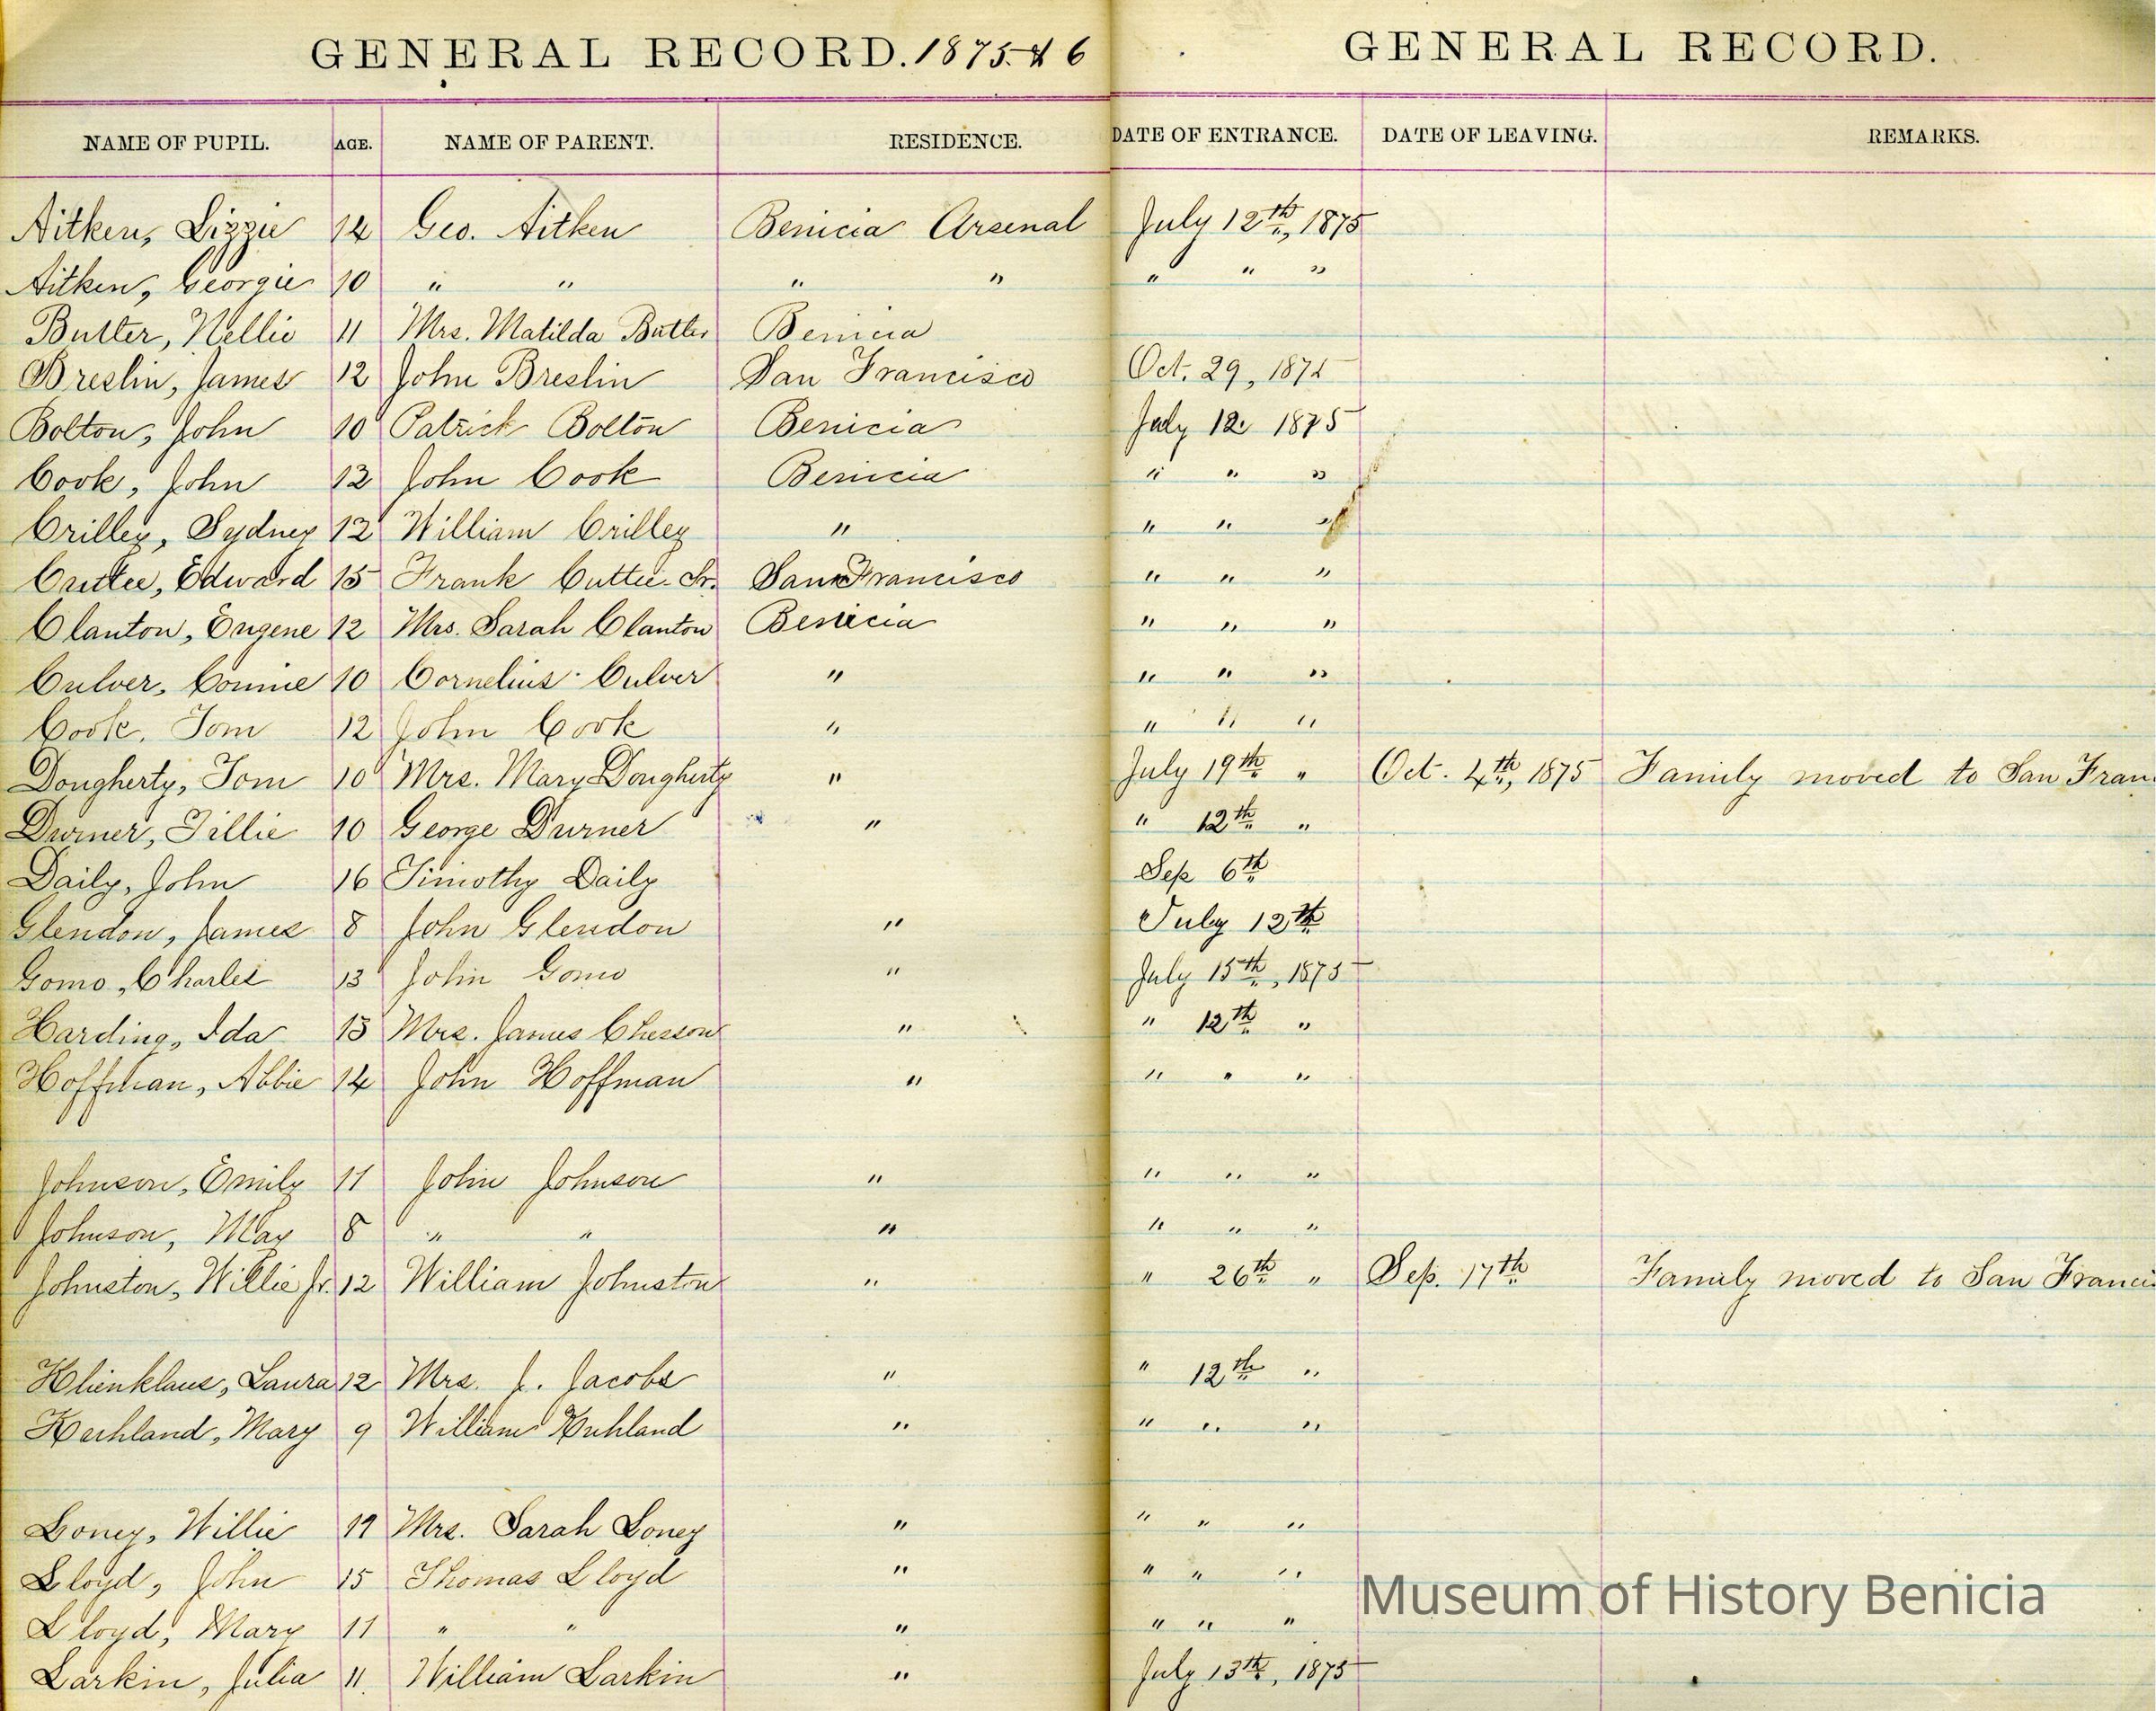 GENERAL RECORD. 1875 & 6 GENERAL RECORD.
NAME OF PUPIL. AGE. NAME OF PARENT. RESIDENCE. DATE OF ENTRANCE. DATE OF LEAVING. REMARKS.
Aitken, Lizzie 14 Geo. Aitken Benicia Arsenal July 12th, 1875
Aitken, Georgie 10 " " " " " " "
Butler, Nellie 11 Mrs. Matilda Butler Benicia
Breslin, James 12 John Breslin San Francisco Oct. 29, 1875
Bolton, John 10 Patrick Bolton Benicia July 12. 1875
Cook, John 12 John Cook Benicia " " "
Crilley, Sydney 12 William Crilley " " " "
Cuttee, Edward 15 Frank Cuttee Sr. San Francisco " " "
Clanton, Eugene 12 Mrs. Sarah Clanton Benicia " " "
Culver, Connie 10 Cornelius Culver " " " "
Cook, Tom 12 John Cook " " " "
Dougherty, Tom 10 Mrs. Mary Dougherty " July 19th " Oct. 4th, 1875 Family moved to San Fran
Durner, Tillie 10 George Durner " " 12th "
Daily, John 16 Timothy Daily Sep 6th
Glendon, James 8 John Glendon " July 12th
Gomo, Charles 13 John Gomo " July 15th, 1875
Harding, Ida 13 Mrs. James Chesson " " 12th "
Hoffman, Abbie 14 John Hoffman " " " "
Johnson, Emily 11 John Johnson " " " "
Johnson, May 8 " " " " " "
Johnston, Willie Jr. 12 William Johnston " " 26th " Sep. 17th Family moved to San Franci
Klienklaus, Laura 12 Mrs. J. Jacobs " " 12th "
Kuhland, Mary 9 William Kuhland " " " "
Loney, Willie Mrs. Sarah Loney " " " "
Lloyd, John 15 Thomas Lloyd " " " "
Lloyd, Mary 11 " " " " " "
Larkin, Julia 11 William Larkin " July 13th, 1875
Museum of History Benicia